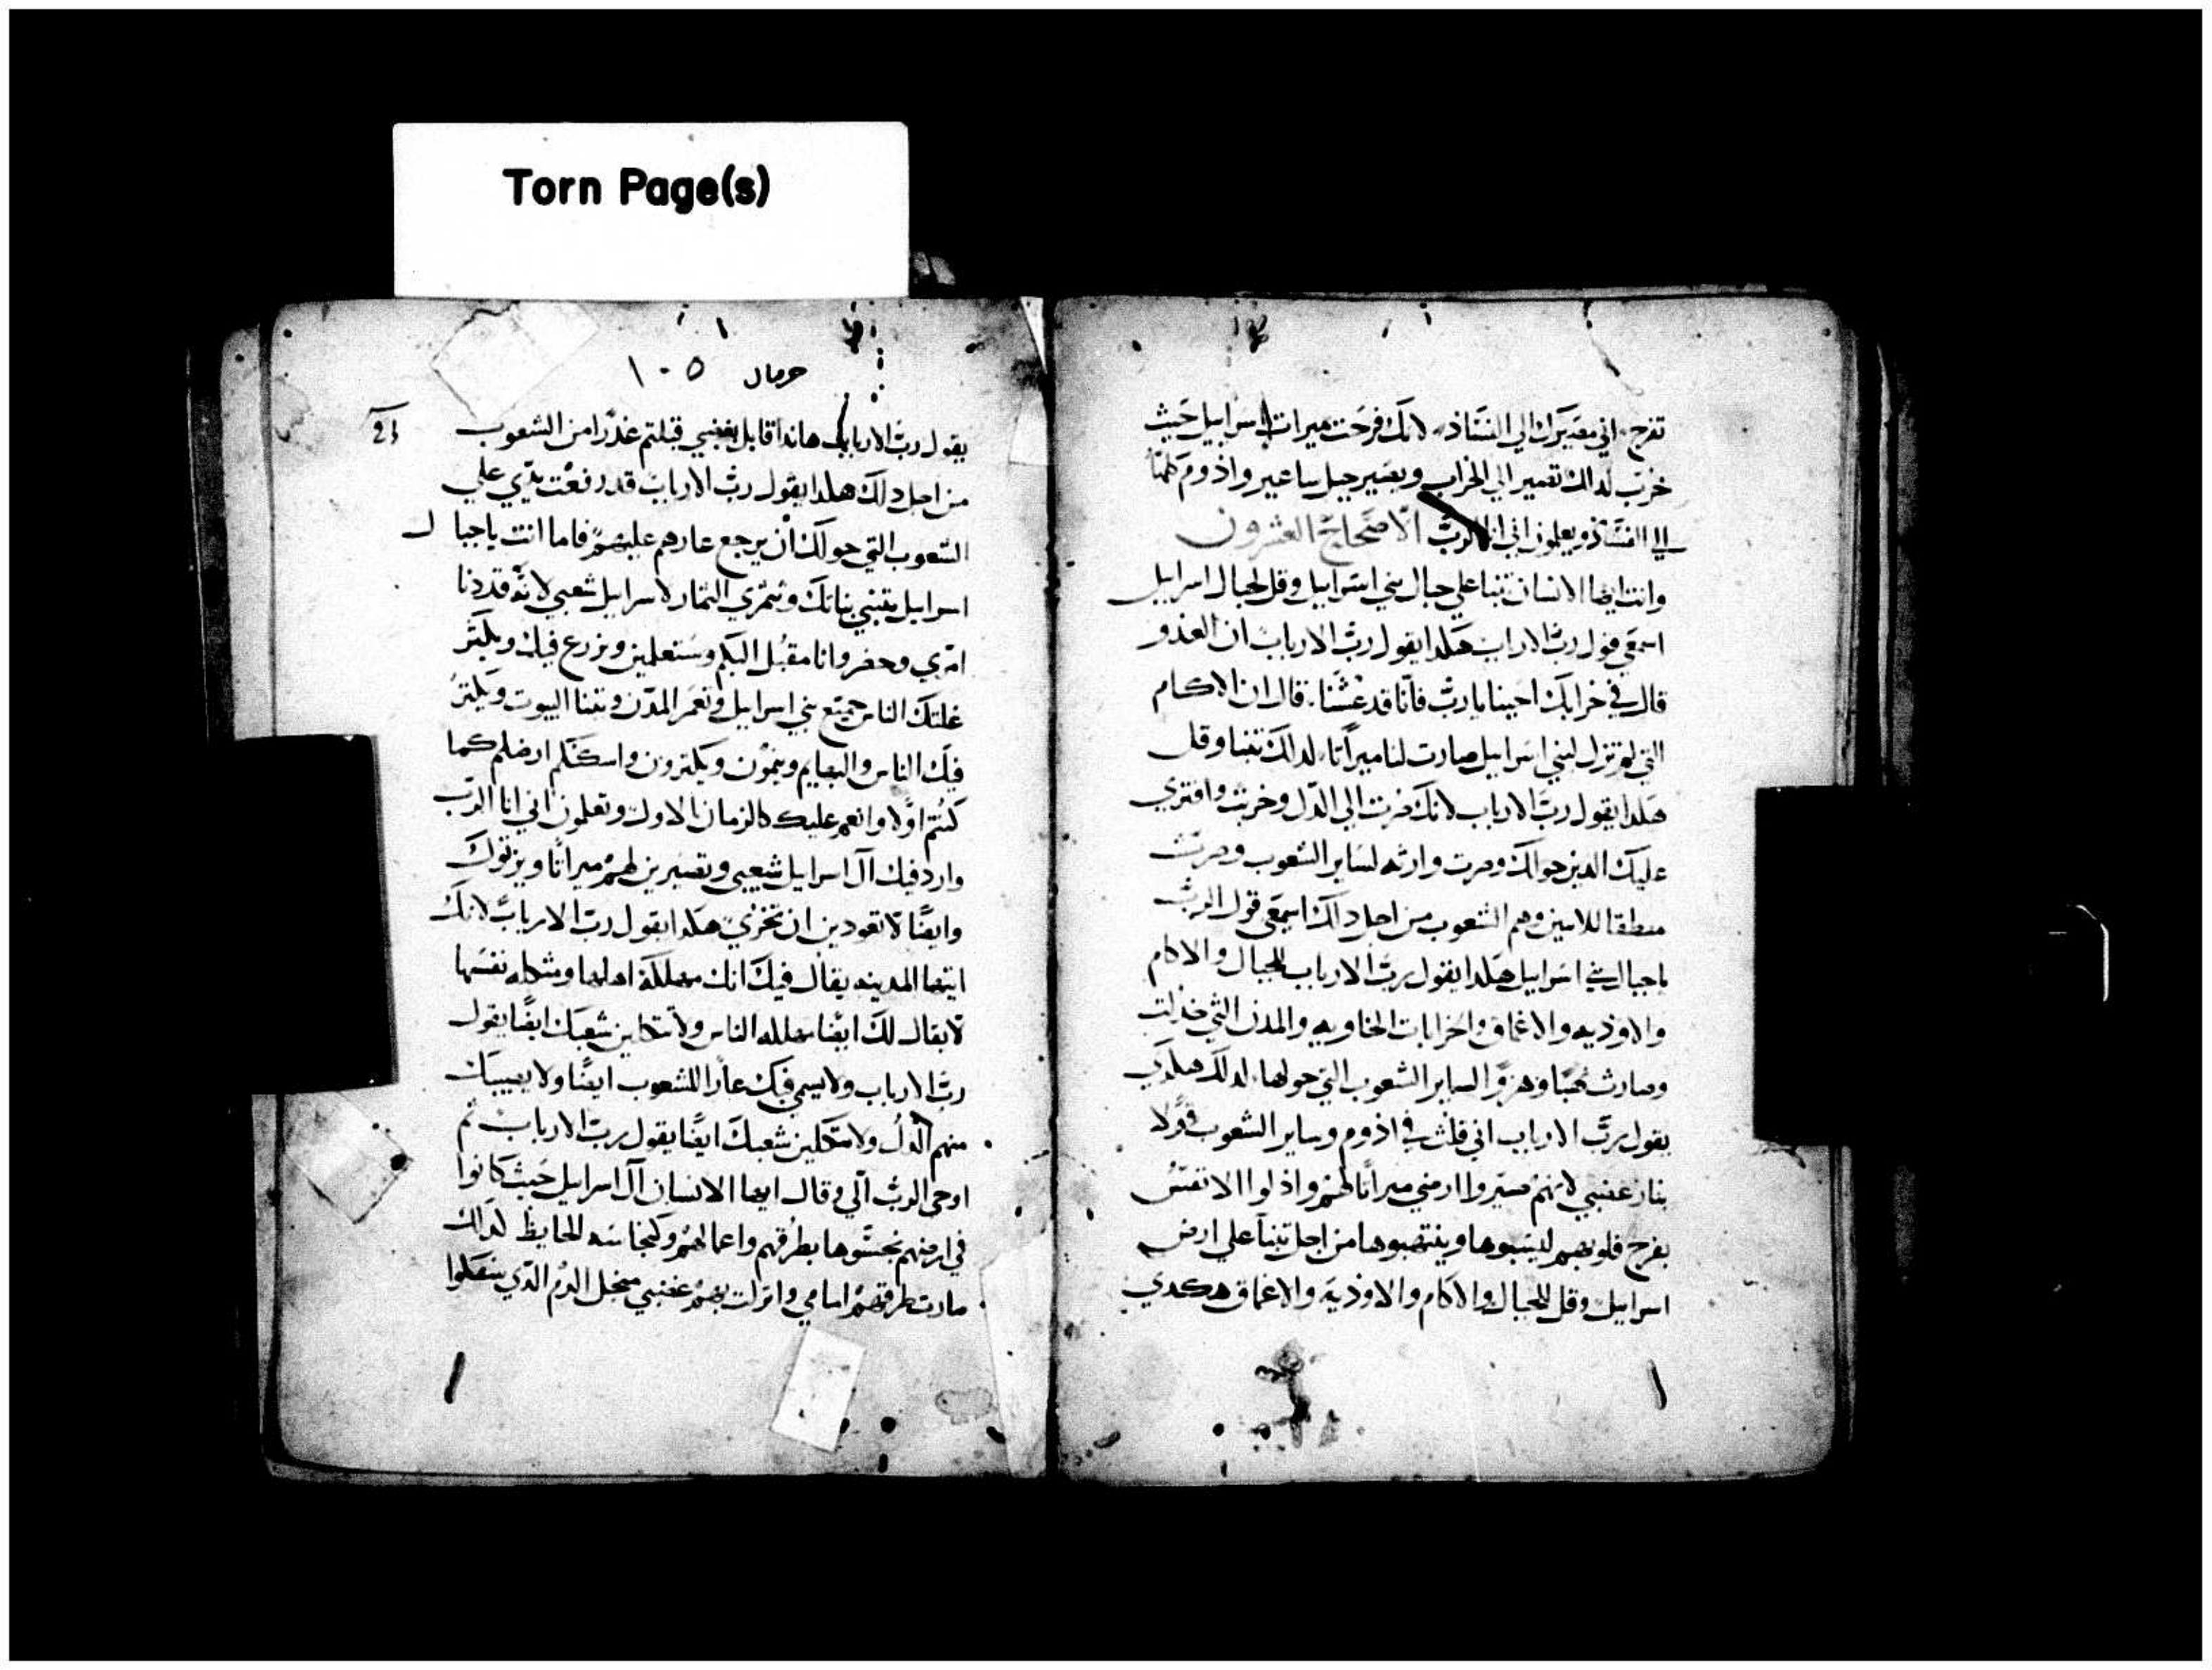 Torn Page(s)
تفرح. اني مصيرك الي الفساد. لانك فرحت ميرات اسرابيل حيث
خرب لدالك تصير الي الخراب ويصير جبل ساعير واذوم كلها
الي الفساد ويعلمون اني انا الرب الاصحاح العشرون
وانت ايها الانسان تنبا علي جبال بني اسرابيل وقل لجبال اسرابيل
اسمعي قول رب الارباب هكدا يقول رب الارباب ان العدو
قال في خرابك احيينا يارب فانا قد عشنا. قال ان الاكام
التي لم تزل لبني اسرابيل صارت لنا ميراثا. لدالك تنبا وقل
هكدا يقول رب الارباب لانك صرت الي الدل وخربت وافتري
عليك الدين حوالك وصرت وارثه لساير الشعوب وصرت
منطقا للاسن وهم الشعوب من اجل دالك اسمعي قول الرب
ياجبال بني اسرابيل هكدا يقول رب الارباب للجبال والاكام
والاوديه والاعماق والخرابات الخاويه والمدن التي خدلت
وصارت نهبا وهزوا لساير الشعوب التي حولها. لدلك هكدي
يقول رب الارباب اني قلت في اذوم وساير الشعوب قولا
بنار غضبي لانهم صيروا ارضي ميراثا لهم واذلوا الانفس
بفرح قلوبهم ليسبوها وينتهبوها من اجل تنبا علي ارض
اسرابيل وقل للجبال والاكام والاوديه والاعماق هكدي
حرمال ١٠٥
يقول رب الارباب هاندا قابل بغضبي قبلتم غدرا من الشعوب
21
من اجل دلك هكدا يقول رب الارباب قد رفعت يدي علي
الشعوب التي حولك ان يرجع عارهم عليهم فاما انت ياجبال
اسرابيل بنباتك وتثمري الثمار لاسرابيل شعبي لانه قد دنا
امري وحضر وانا مقبل اليكم وستعلمين ويزرع فيك ويكثر
غلتك الناس جميع بني اسرابيل وتعمر المدن وتبنا البيوت ويكثر
فيك الناس والبهايم وينمون ويكثرون واسكنكم ارضكم كما
كنتم اولا وانعم عليك كالزمان الاول وتعلمون اني انا الرب
وارد فيك آل اسرايل شعبي وتصيرين لهم ميراثا ويرثوك
وايضا لا تعودين ان تخزي هكدا يقول رب الارباب لانك
ايتها المدينه يقال فيك انك مهلكة اهلها ومثكله نفسها
لا يقال لك ايضا مهلكه الناس ولا تثكلين شعبك ايضا يقول
رب الارباب ولا يسمع فيك عارا للشعوب ايضا ولا يصيبك
منهم الدل ولا تثكلين شعبك ايضا يقول رب الارباب ثم
اوحي الرب الي وقال ايها الانسان آل اسرابيل حيث كانوا
في ارضهم نجسوها بطرقهم واعمالهم وكنجاسه الحايظ لدالك
صارت طرقهم امامي وانزلت بهم غضبي من اجل الدم الدي سفكوا